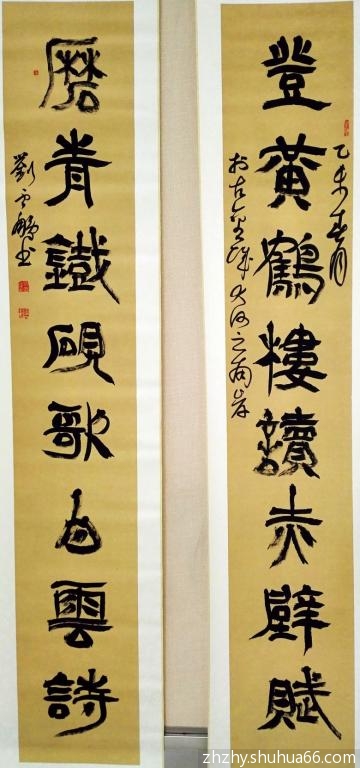 登黃鶴樓讀赤壁賦
乙未春月
於古金城大河之南岸
磨青鐵硯歌白雲詩
劉云鵬書
zhzhy.shuhua66.com